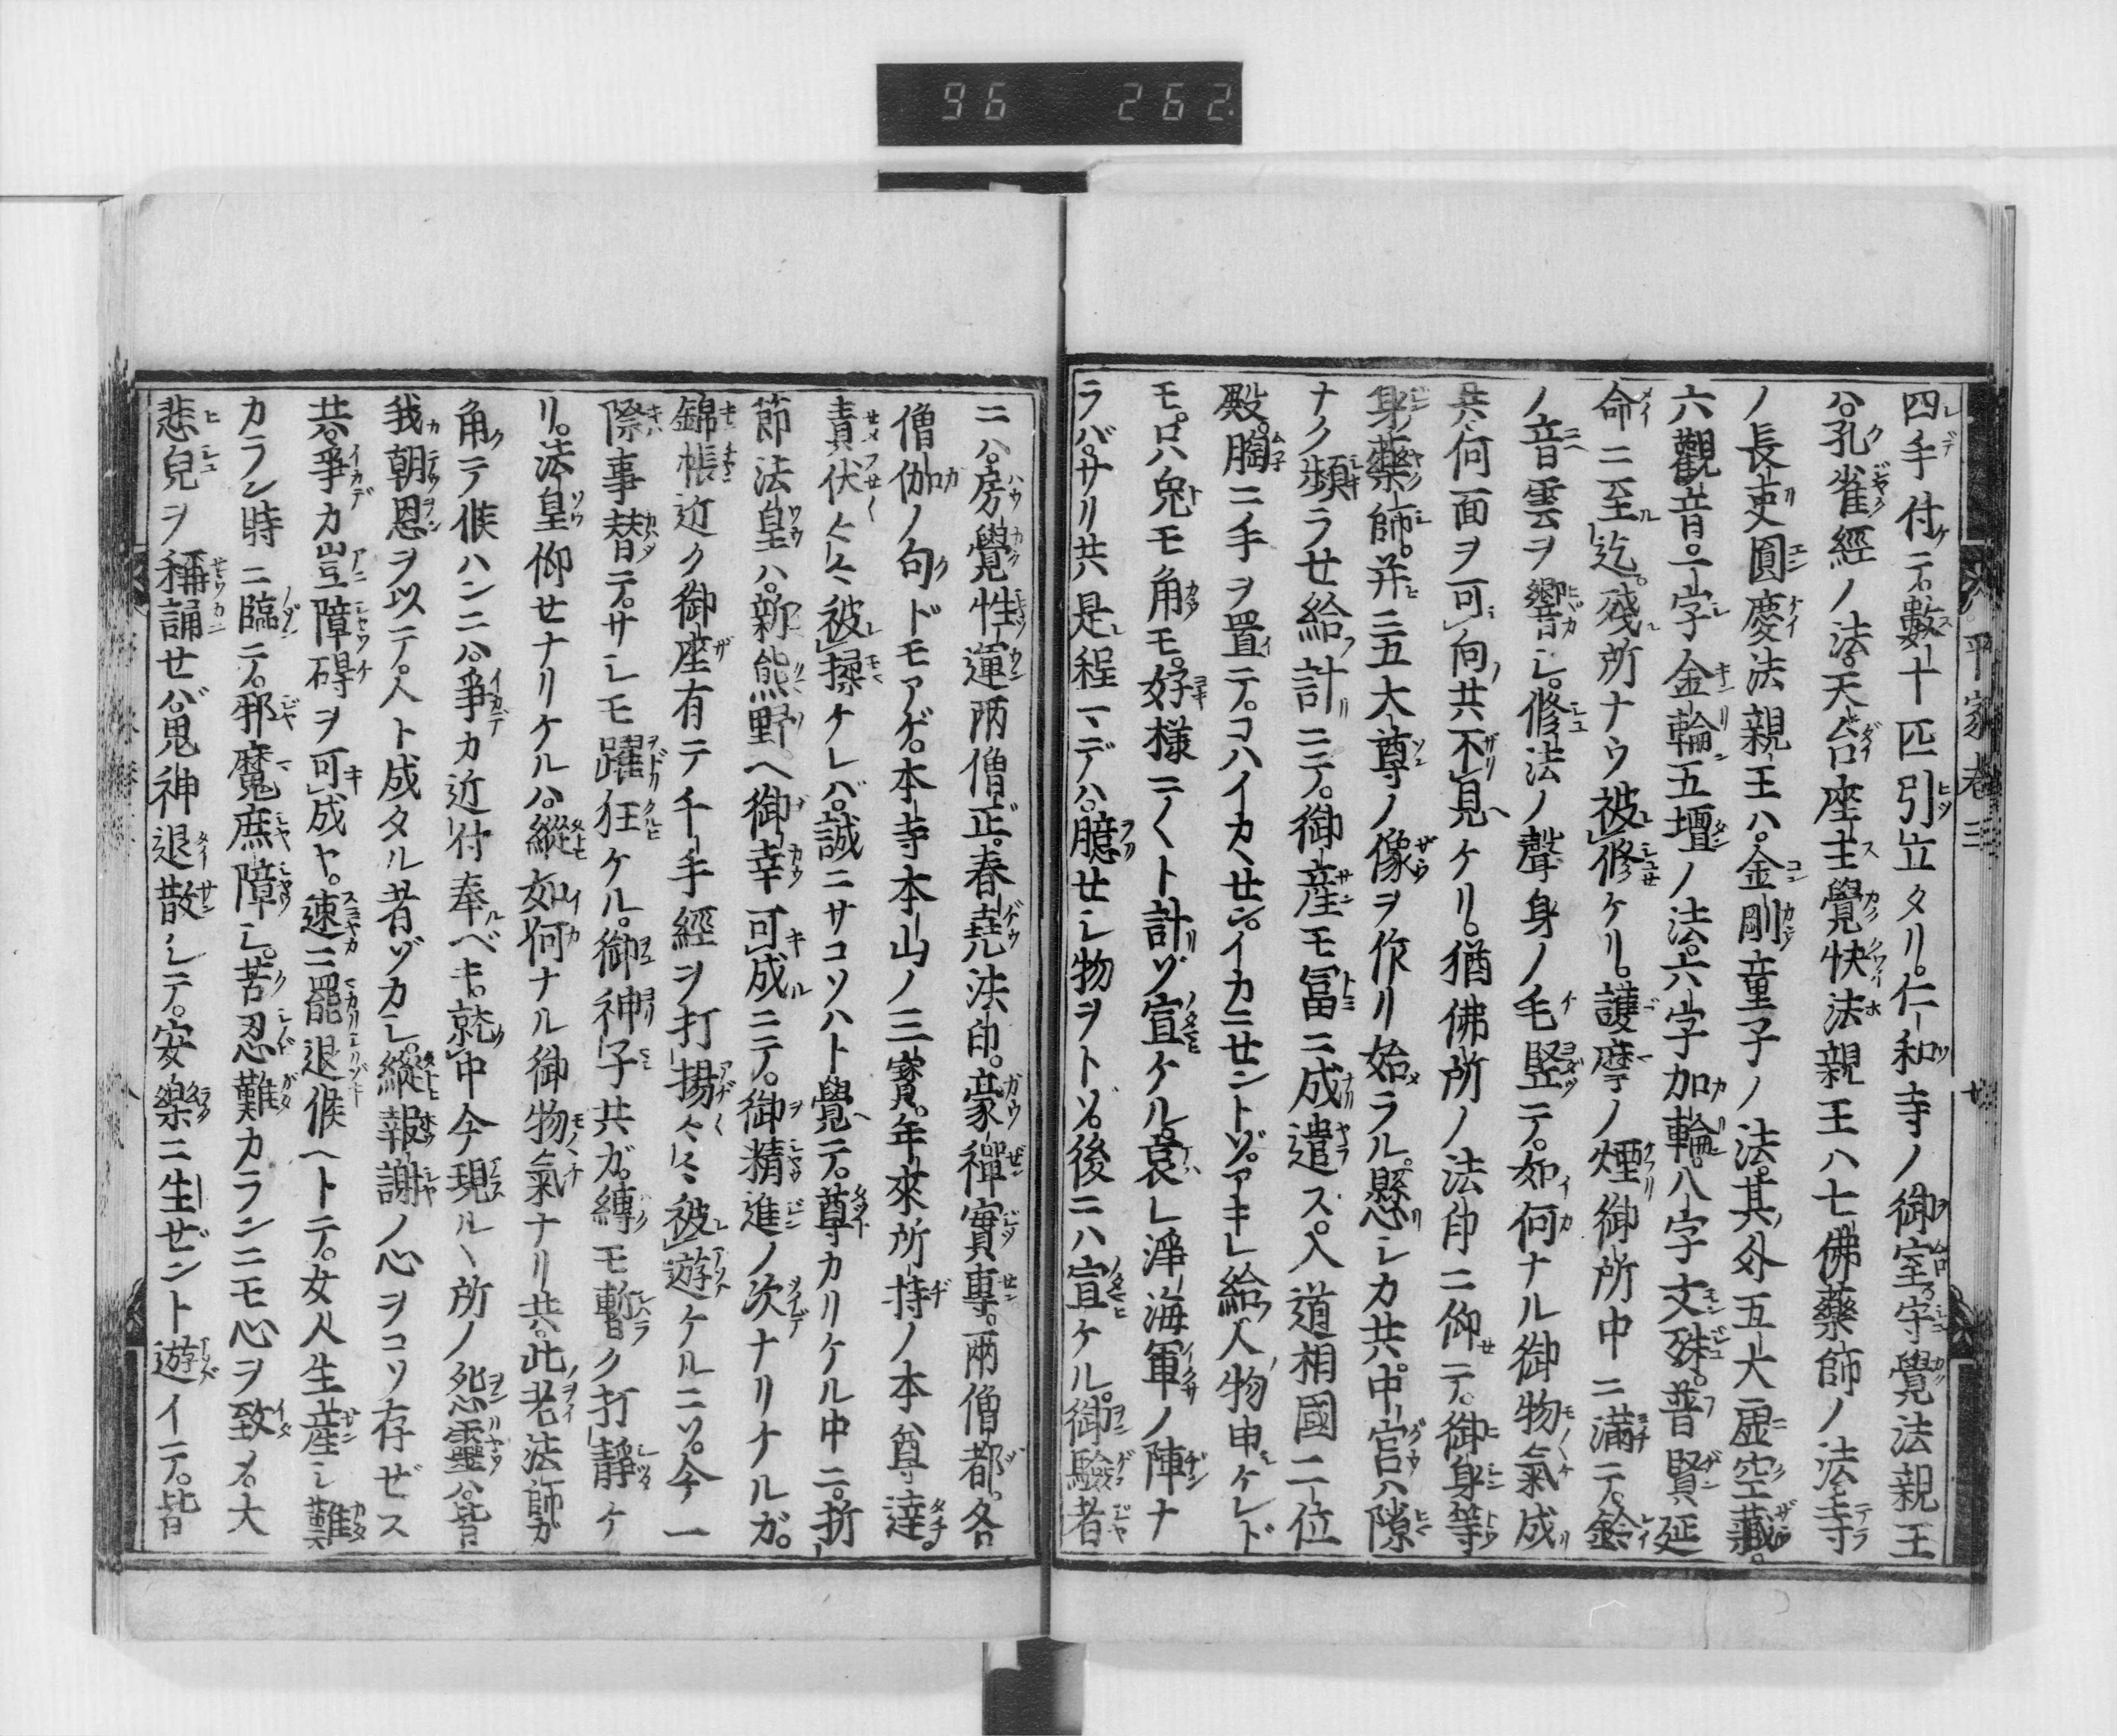 96 262
平家巻三 廿
四手付テ。數十匹引立タリ。仁和寺ノ御室守覺法親王
ハ。孔雀經ノ法。天台座主覺快法親王ハ七佛藥師ノ法。寺
ノ長吏圓慶法親王ハ。金剛童子ノ法。其外五大虚空藏。
六觀音。一字金輪五壇ノ法。六字加輪。八字文殊。普賢延
命ニ至迄。殘所ナウ被修ケリ。護摩ノ煙御所中ニ滿テ。鈴
ノ音雲ヲ響シ。修法ノ聲身ノ毛竪テ。如何ナル御物氣成
共。何面ヲ可向共不見ケリ。猶佛所ノ法印ニ仰テ。御身等
身ノ藥師。并ニ五大尊ノ像ヲ作リ始ラル。懸シカ共。中宮ハ隙
ナク頻ラせ給計ニテ。御産モ冨ニ成遣ズ。入道相國二位
殿。胸ニ手ヲ置テ。コハイカヽせン。イカニせントゾ。アキレ給。人物申ケレド
モ。只兔モ角モ。好樣ニ〱ト計ゾ宣ケル。哀レ淨海軍ノ陣ナ
ラバ。サリ共是程マデハ。臆せシ物ヲトゾ。後ニハ宣ケル。御驗者
ニハ。房覺性運兩僧正。春堯法印。豪禪實專。兩僧都。各
僧伽ノ句ドモアゲ。本寺本山ノ三寳。年來所持ノ本尊達。
責伏〱被揉ケレバ。誠ニサコソハト覺テ。尊カリケル中ニ。折
節法皇ハ。新熊野ヘ御幸可成ニテ。御精進ノ次ナリケルガ。
錦帳近ク御座有テ千手經ヲ打揚〱被遊ケルニソ。今一
際事替テ。サシモ躍狂ケル。御神子共ガ。縛モ暫ク打靜ケ
リ。法皇仰せナリケルハ。縱如何ナル御物氣ナリ共。此老法師ガ
角テ候ハンニハ。爭カ近付奉ルベキ。就中今現ルヽ所ノ怨靈ハ。皆
我朝恩ヲ以テ。人ト成タル者ゾカシ。縱報謝ノ心ヲコソ存ぜス
共。爭カ豈障碍ヲ可成ヤ。速ニ罷退候ヘトテ。女人生産シ難
カラン時ニ臨テ。邪魔庶障シ。苦忍難カランニモ心ヲ致メ。大
悲兒ヲ稱誦せバ。鬼神退散シテ。安樂ニ生ぜント遊イテ。皆